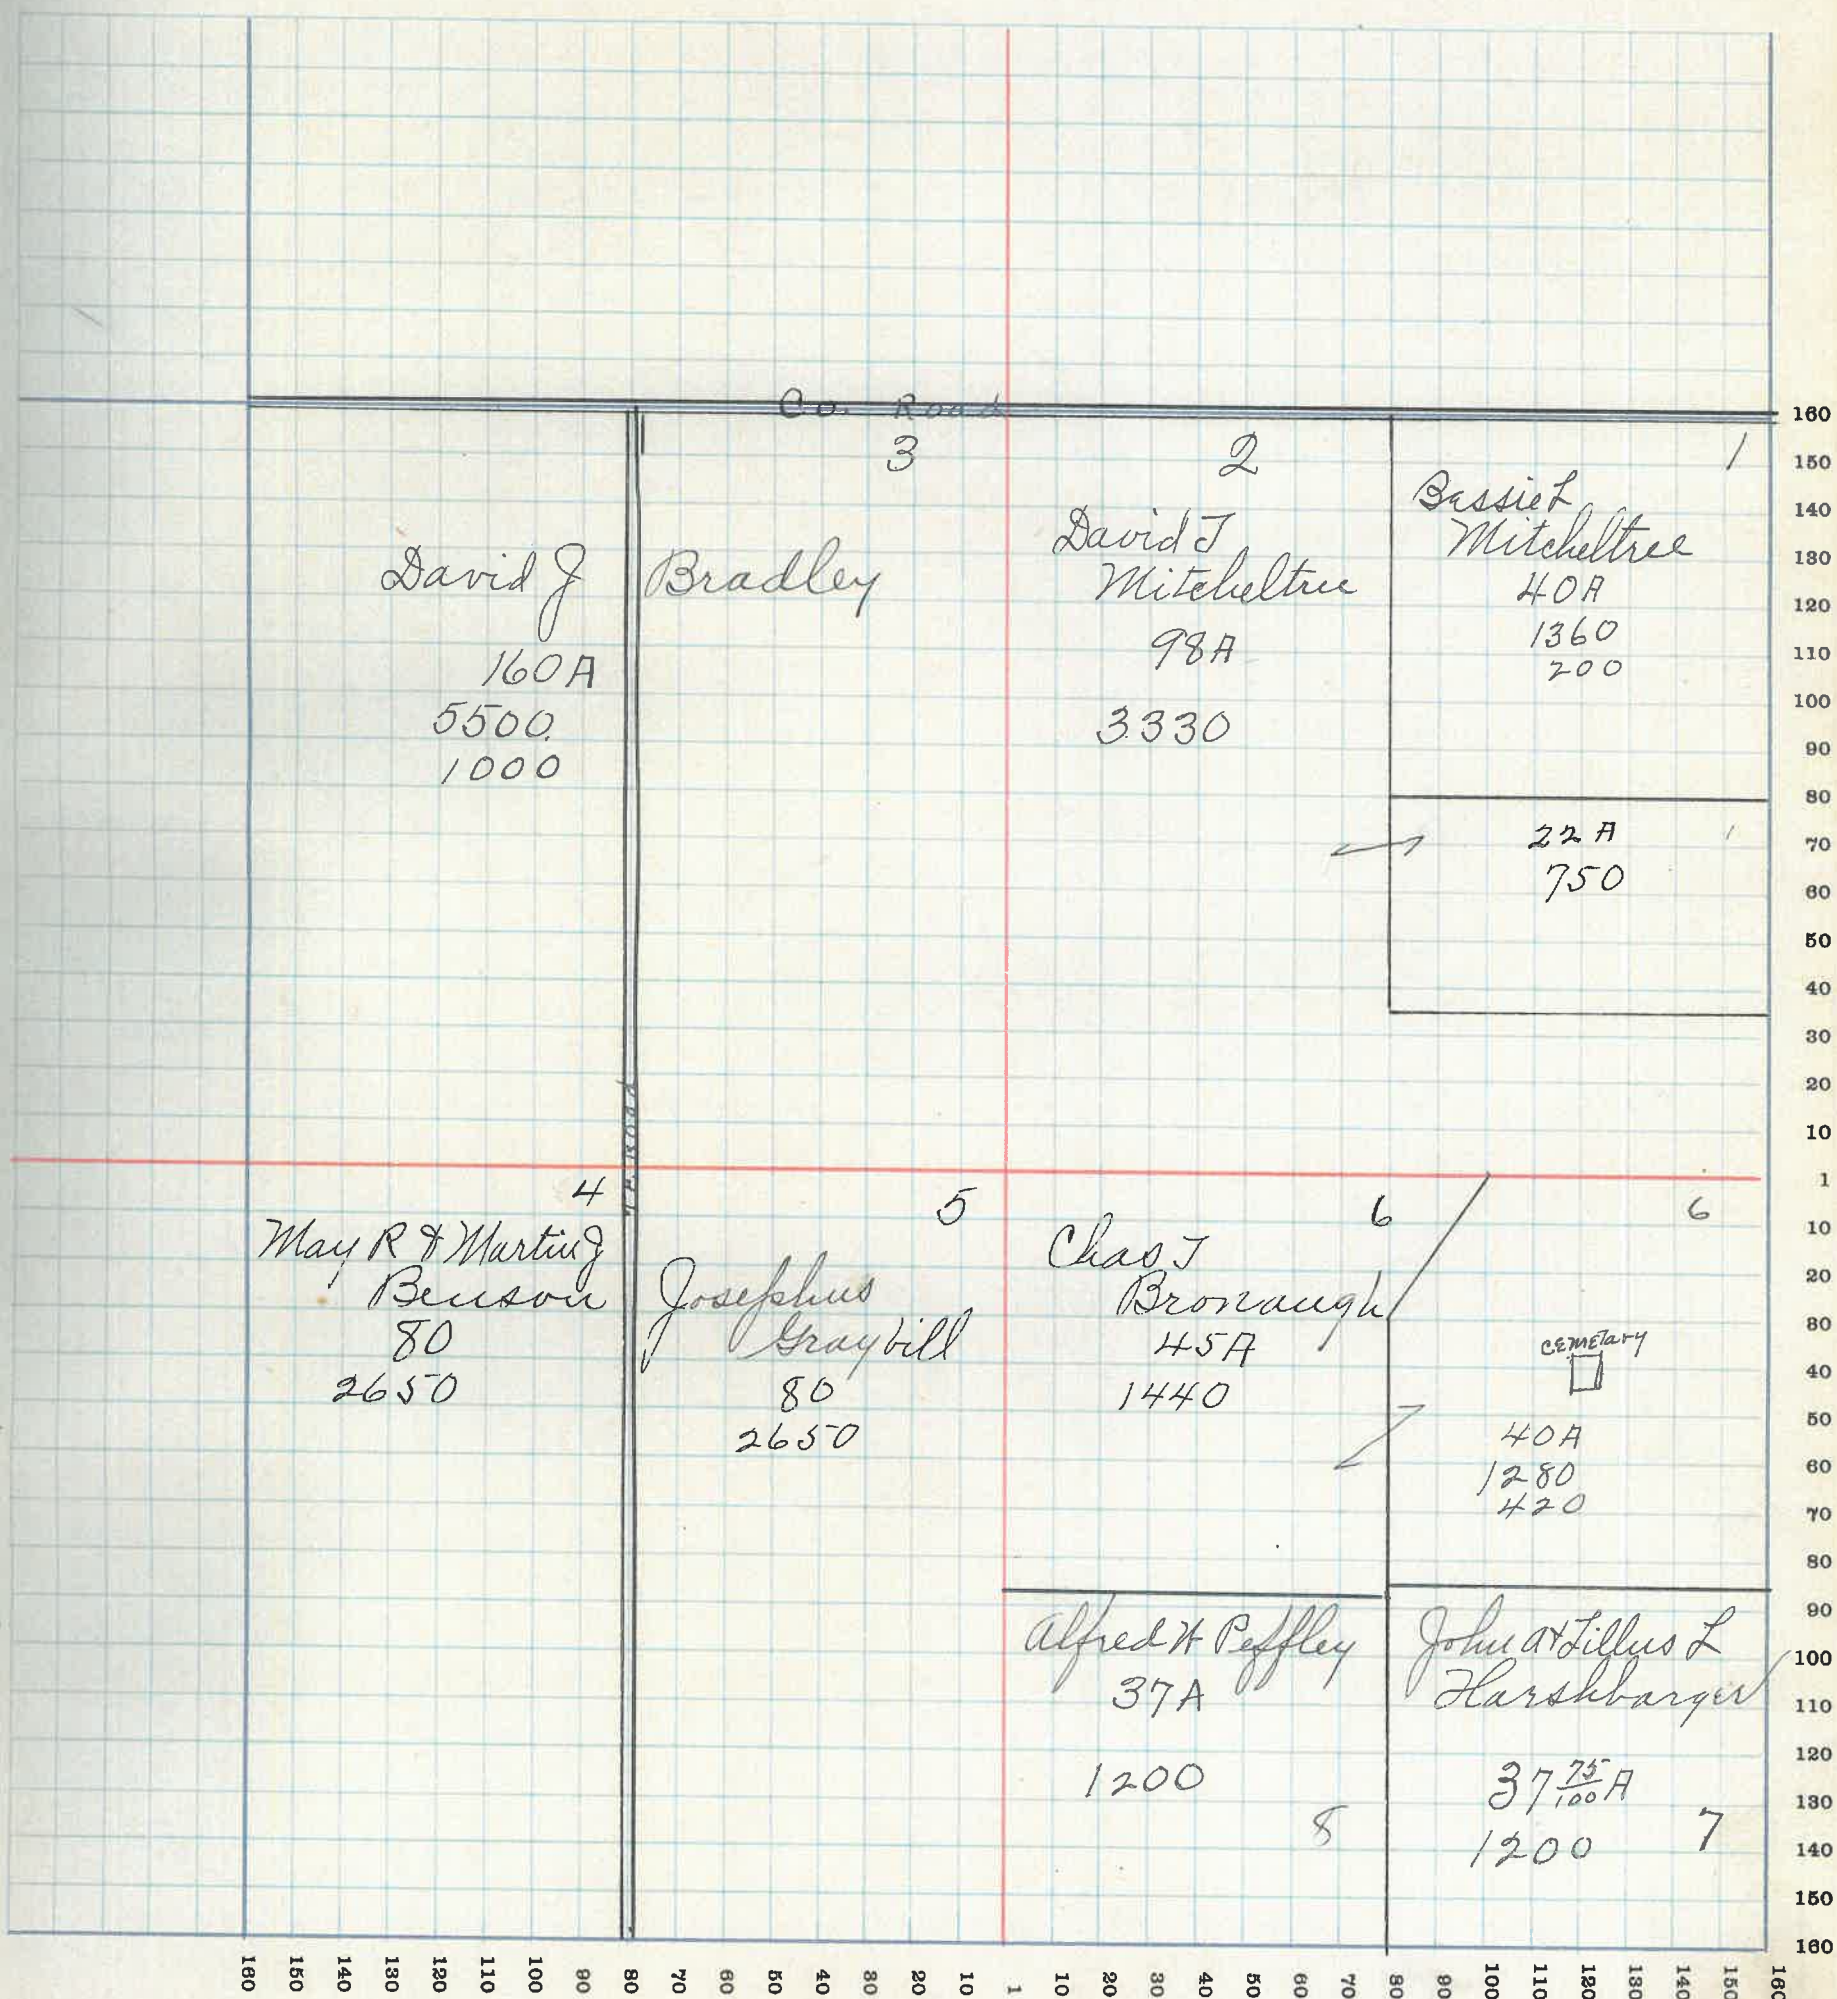 Co. Road
3
2
1
David J Bradley
160A
5500
1000
David T
Mitcheltree
98A
3330
Bessie L
Mitcheltree
40A
1360
200
22A
750
4
May R & Martin J
Benson
80
2650
5
Josephus
Graybill
80
2650
6
Chas T
Bronaugh
45A
1440
6
CEMETary
40A
1280
420
Alfred W Peffley
37A
1200
8
John A & Lillus L
Harshbarger
37 75/100 A
1200
7
160
150
140
130
120
110
100
90
80
70
60
50
40
30
20
10
1
10
20
30
40
50
60
70
80
90
100
110
120
130
140
150
160
160 150 140 130 120 110 100 90 80 70 60 50 40 30 20 10 1 10 20 30 40 50 60 70 80 90 100 110 120 130 140 150 160